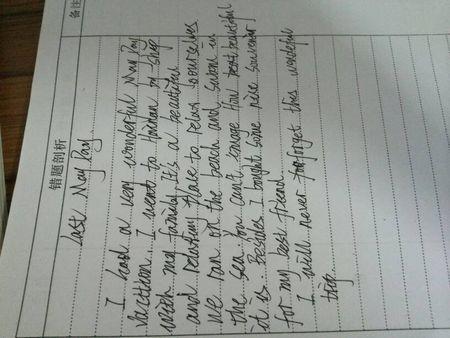 备注
错题剖析
last May Day
I had a very wonderful May Day
vacation. I went to Hainan on ship
with my family. It's a beautiful
and relating place to relax ourselves
we ran on the beach and swam in
the sea. You can't image How beautiful
it is. Besides I bought some nice souvenirs
for my best friend
I will never forget this wonderful
trip.